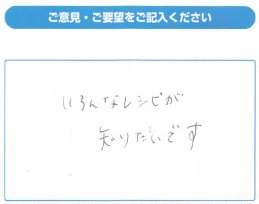 ご意見・ご要望をご記入ください
いろんなレシピが
知りたいです